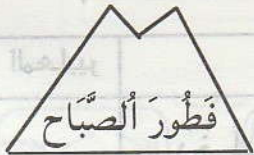 فَطُورَ ٱلصَّبَاح